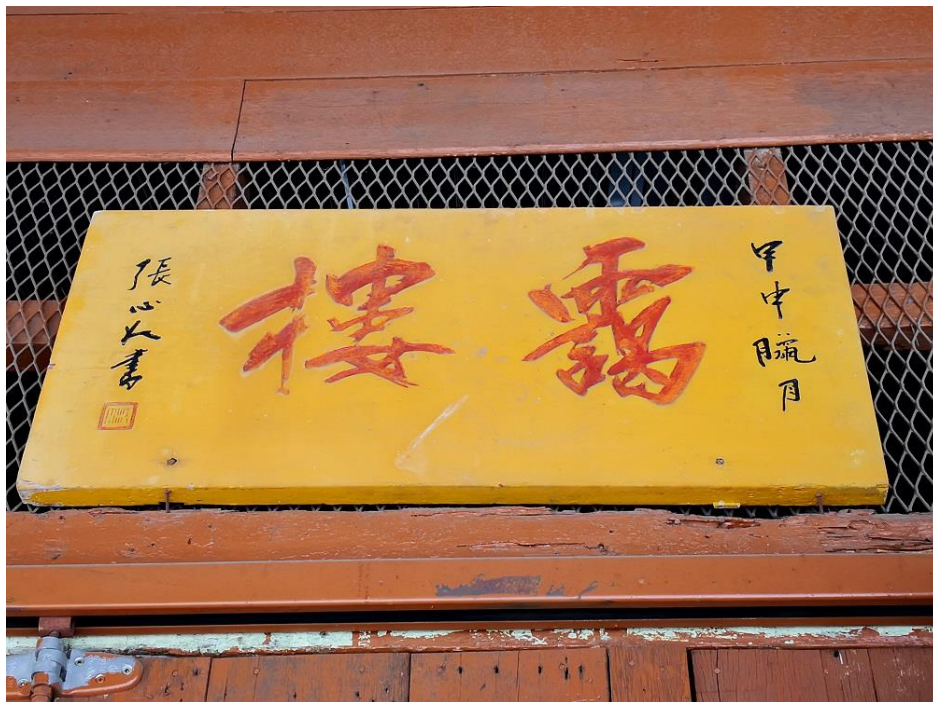 甲申臘月
靄樓
張心書